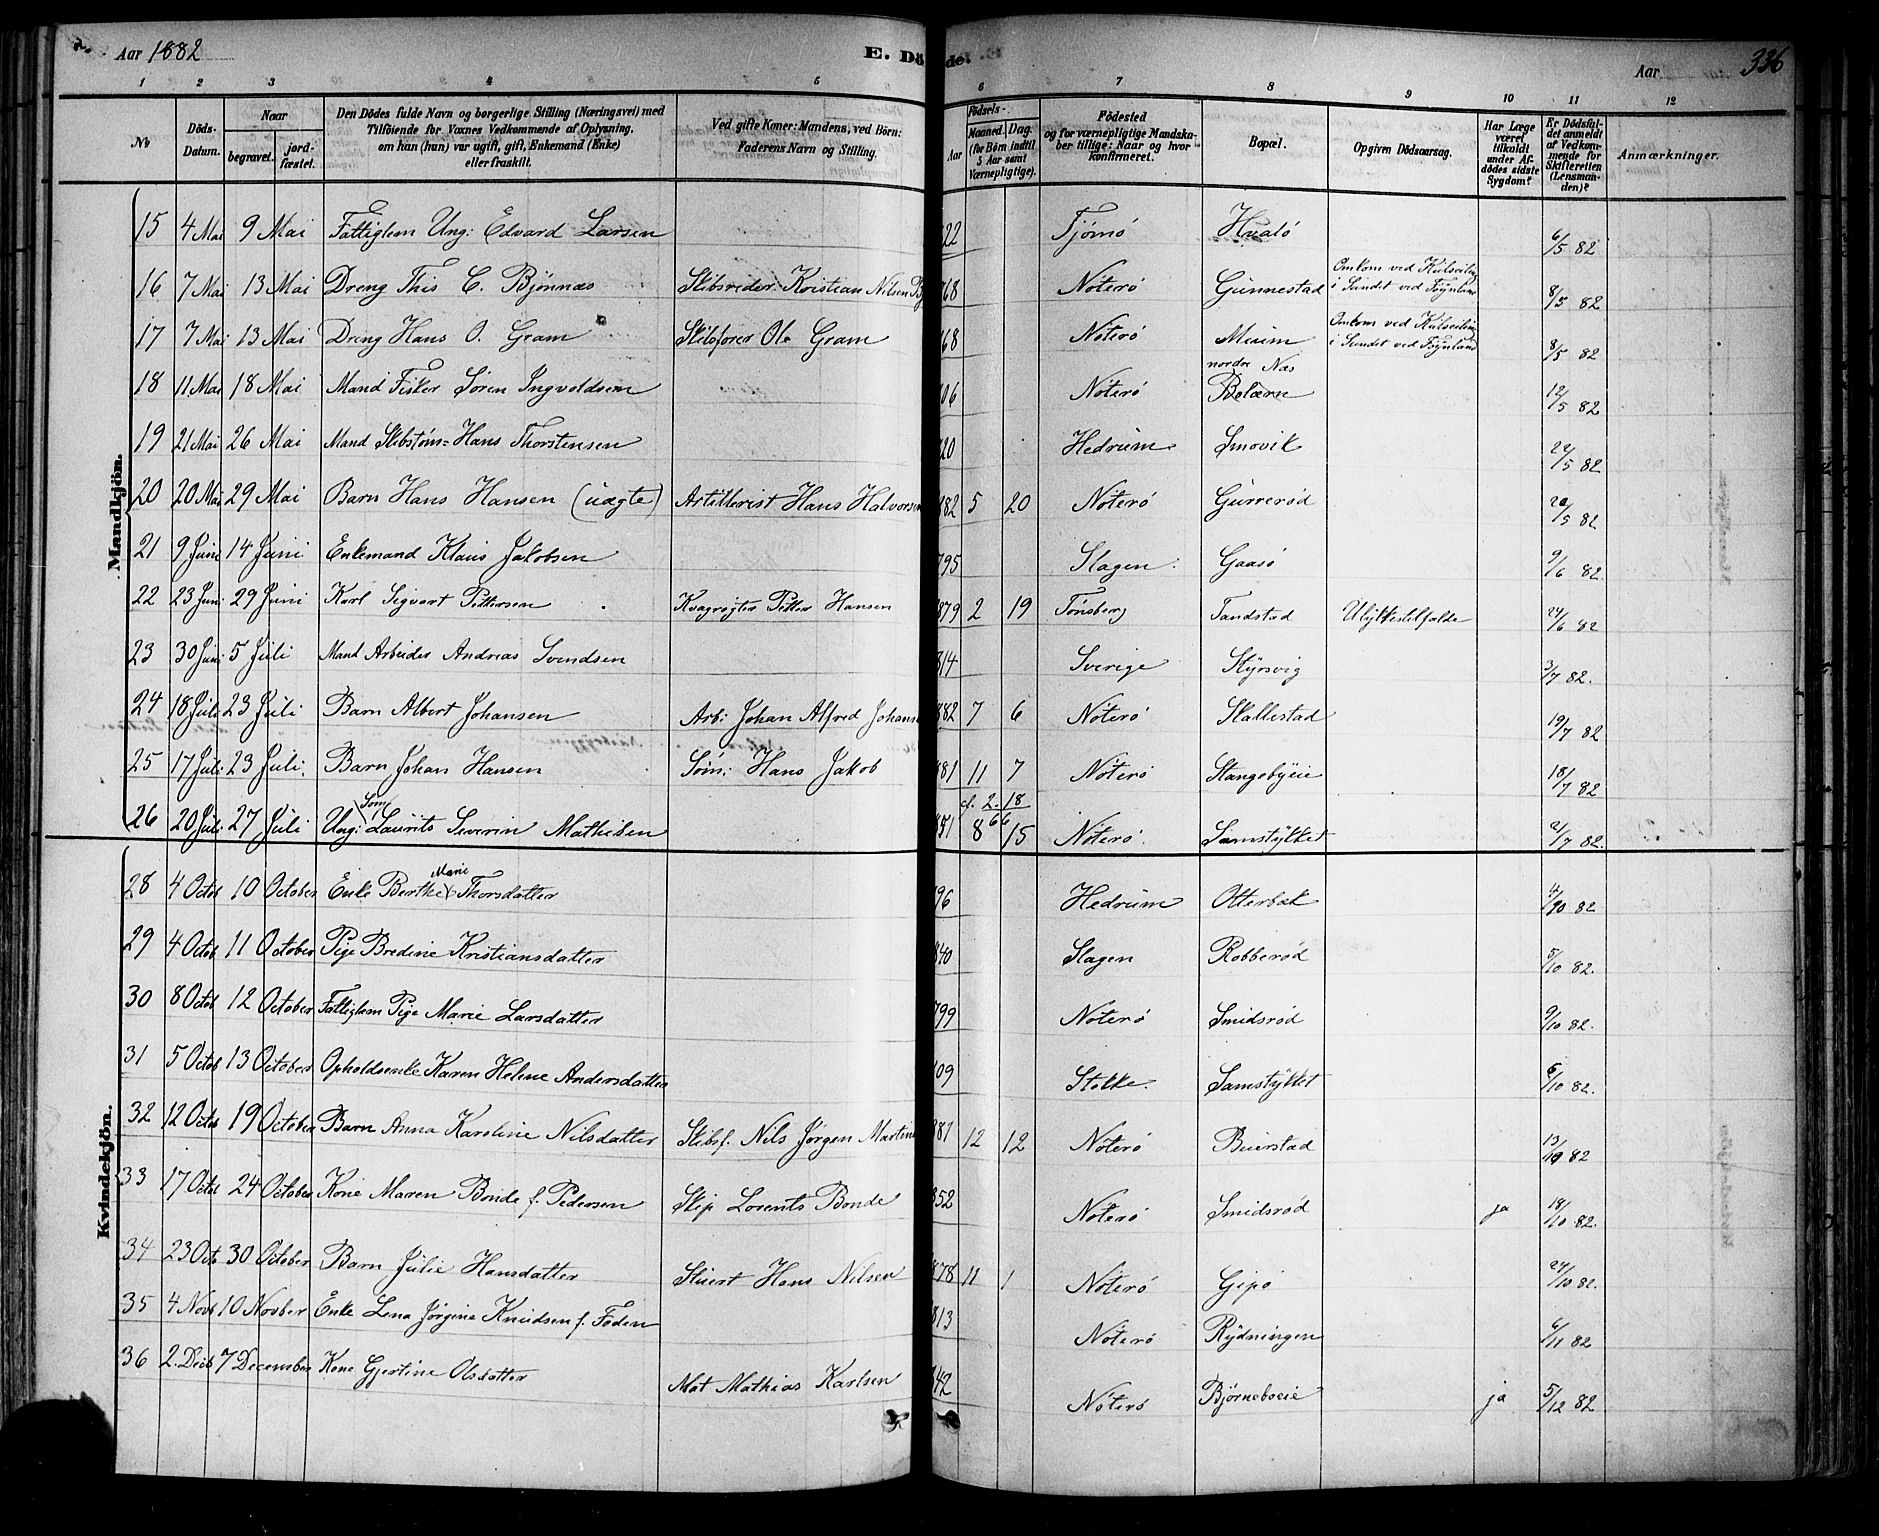 Aar 1882
E. Dö
1 2 3 4 5
№
Döds-
Datum.
Naar
begravet.
jord-
fæstet.
Den Dödes fulde Navn og borgerlige Stilling (Næringsvei) med
Tilföiende for Voxnes Vedkommende af Oplysning,
om han (hun) var ugift, gift, Enkemand (Enke)
eller fraskilt.
Ved gifte Koner: Mandens, ved Börn:
Faderens Navn og Stilling.
de.
Aar
336
6 7 8 9 10 11 12
Födsels-
Aar
Maaned. Dag.
(for Börn indtil
5 Aar samt
Værnepligtige).
Födested
og for værnepligtige Mandska-
ber tillige: Naar og hvor
konfirmeret.
Bopæl.
Opgiven Dödsaarsag.
Har Læge
været
tilkaldt
under Af-
dödes sidste
Sygdom?
Er Dödsfal-
det anmeldt
af Vedkom-
mende for
Skifteretten
(Lensman-
den)?
Anmærkninger.
Mandkjön.
15 4 Mai 9 Mai Fattiglem Ung: Edvard Larsen 22 Tjømø Hvalø 6/5 82
16 7 Mai 13 Mai Dreng This C. Bjønnæs Skibsreder Kristian Nilsen Bj 68 Nøterø Gunnestad Omkom ved Kulseiling
i Sundet ved Føynland 8/5 82
17 7 Mai 13 Mai Dreng Hans O. Gram Skibsfører Ole Gram 68 Nøterø Meum Omkom ved Kulseiling
i Sundet ved Føynland 8/5 82
18 11 Mai 18 Mai Mand Fisker Søren Ingvoldsen 06 Nøterø nordre Nes
Bolærne 12/5 82
19 21 Mai 26 Mai Mand Skibstøm= Hans Thorstensen 20 Hedrum Smovik 22/5 82
20 20 Mai 29 Mai Barn Hans Hansen (uægte) Artillerist Hans Halvorsen 82 5 20 Nøterø Gurrerød 20/5 82
21 9 Juni 14 Juni Enkemand Klaus Jakobsen 795 Slagen Gaasø 9/6 82
22 23 Juni 29 Juni Karl Sigvart Pettersen Kvægrøgter Petter Hansen 879 2 19 Tønsberg Tandstad Ulykkestilfælde 24/6 82
23 30 Juni 5 Juli Mand Arbeider Andreas Svendsen 814 Sverige Styrsvig 3/7 82.
24 18 Juli 23 Juli Barn Albert Johansen Arb: Johan Alfred Johans 882 7 6 Nøterø Skallestad 19/7 82
25 17 Juli 23 Juli. Barn Johan Hansen Søm: Hans Jakob 881 11 7 Nøterø Stangebyeie 18/7 82
26 20 Juli 27 Juli Ung: Søm Laurits Severin Mathisen 8 15 Nøterø. Samstykket 2/7 82.
Kvindekjön.
28 4 Octob 10 October Enke Berthe Marie Thorsdatter 96 Hedrum Otterbæk 4/10 82
29 4 Octob 11 October Pige Bredine Kristiansdatter 840 Slagen Robberød 5/10 82.
30 8 Octob 12 October Fattiglem Pige Marie Larsdatter 799 Nøterø Smidsrød 9/10 82.
31 5 Octob 13 October Opholdsenke Karen Helene Andersdatter 09 Stokke. Samstykket 6/10 82.
32 12 Octob 19 October Barn Anna Karoline Nilsdatter Skibsf. Nils Jørgen Martin 881 12 12 Nøterø Buerstad 13/10 82
33 17 Octob 24 October Kone Maren Bonde f. Pedersen Skip Lorents Bonde 852 Nøterø Smidsrød ja 18/10 82.
34 23 Octo 30 October Barn Julie Hansdatter Stuert Hans Nilsen 878 11 1 Nøterø Gipø 24/10 82.
35 4 Novb 10 Novber Enke Lena Jørgine Knudsen f. Foden 813 Nøterø Rydningen 6/11 82
36 2. Decb 7 December Kone Gjertine Olsdatter Mat Mathias Karlsen 42 Nøterø Bjørneboeie ja 5/12 82